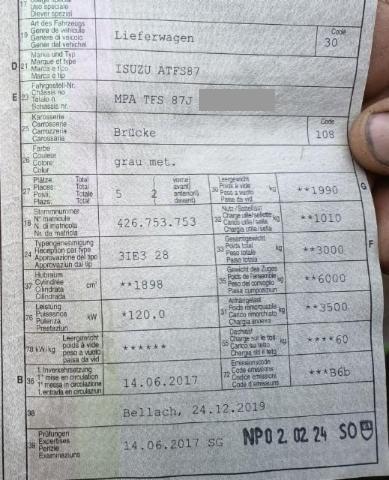 Usage spécial
Uso speciale
Diever spezial
19 Art des Fahrzeugs
Genre de véhicule
Genere di veicolo
Gener dal vehichel
Lieferwagen
Code
30
D 21 Marke und Typ
Marque et type
Marca e tipo
Marca e tip
ISUZU ATFS87
E 23 Fahrgestell-Nr.
Châssis no
Telaio n.
Schassis nr.
MPA TFS 87J
25 Karosserie
Carrosserie
Carrozzeria
Carossaria
Brücke
Code
108
26 Farbe
Couleur
Colore
Colur
grau met.
27 Plätze: Total vorne:
Places: Total avant:
Posti: Totale anteriori:
Plazs: Total davant:
5 2
30 Leergewicht
Poids à vide
Peso a vuoto
Paisa da vid
kg
**1990
G
18 Stammnummer
N° matricule
N. di matricola
Nr. da matricla
426.753.753
32 Nutz-/Sattellast
Charge utile/sellette
Carico utile/sella
Chargia utila/sella
kg
**1010
24 Typengenehmigung
Réception par type
Approvazione del tipo
Approvaziun dal tip
3IE3 28
33 Gesamtgewicht
Poids total
Peso totale
Paisa totala
kg
**3000
F
37 Hubraum
Cylindrée
Cilindrata
Cilindrada
cm³
**1898
35 Gewicht des Zuges
Poids de l'ensemble
Peso del convoglio
Paisa cumposiziun
kg
**6000
76 Leistung
Puissance
Potenza
Prestaziun
kW
*120.0
31 Anhängelast
Poids remorquable
Carico rimorchiato
Chargia annexa
kg
**3500
78 kW/kg Leergewicht
poids à vide
peso a vuoto
paisa da vid
******
55 Dachlast
Charge sur le toit
Carico sul tetto
Chargia sin il tetg
kg
****60
B 36 1. Inverkehrsetzung
1re mise en circulation
1a messa in circolazione
1. entrada en circulaziun
14.06.2017
72 Emissionscode
Code émissions
Codice emissioni
Code d'emissiuns
***B6b
38
Bellach, 24.12.2019
39 Prüfungen
Expertises
Perizie
Examinaziuns
14.06.2017 SG
NP 02.02.24 SO